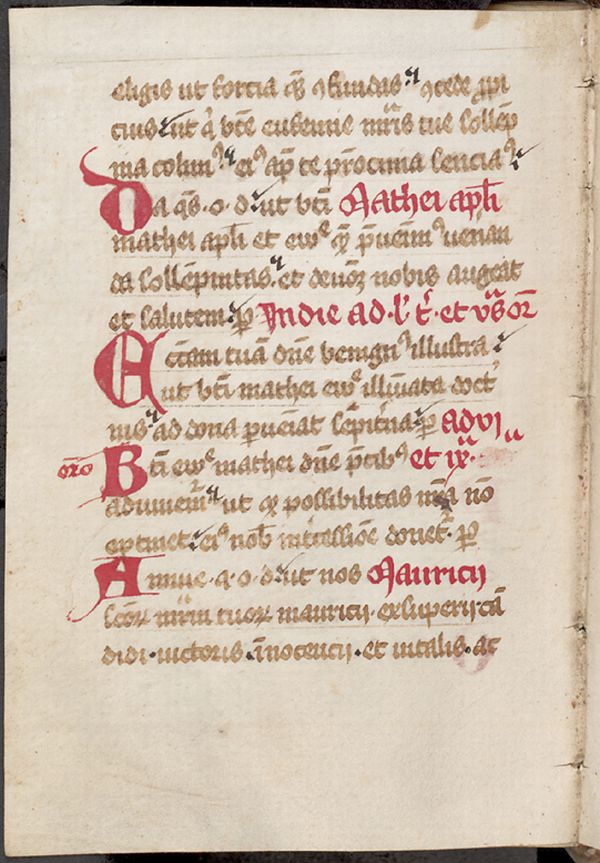 eligis ut fortia q̄q̄ ↄfundas. ↄcede ꝓpi
cius ut q̄ bt̄e eufemie mr̄is tue sollēp
nia colim⁹. ei⁹ ap̄ te p̄rocinia senciā
Da q̄s. o. d. ut bt̄i Mathei apl̄i
mathei apl̄i et ew̄e q̄ p̄uenim⁹ uenan
da sollēpnitas. et deuoꝝ nobis augeat
et salutem. ꝑ In die ad l' t̄. et vs̄ or̄
Ecc̄am tuā dn̄e benign⁹ illustra
ut bt̄i mathei ew̄e illūiata doct'
nis. ad dona ꝑueniat sēpit'na. ꝑ ad vj
oro Bt̄i ew̄e mathei dn̄e p̄cib⁹ et ix.
adiuuem̄. ut q̄ possibilitas nr̄a nō
optinet. ei⁹ nob̄ int'cessiōe donet'. ꝑ
Annue. q. o. d. ut nos Mauricij
sc̄oꝝ mr̄m tuoꝝ mauricij. exsuperij cā
didi. uictoris. īnocencij. et uitalis. ac